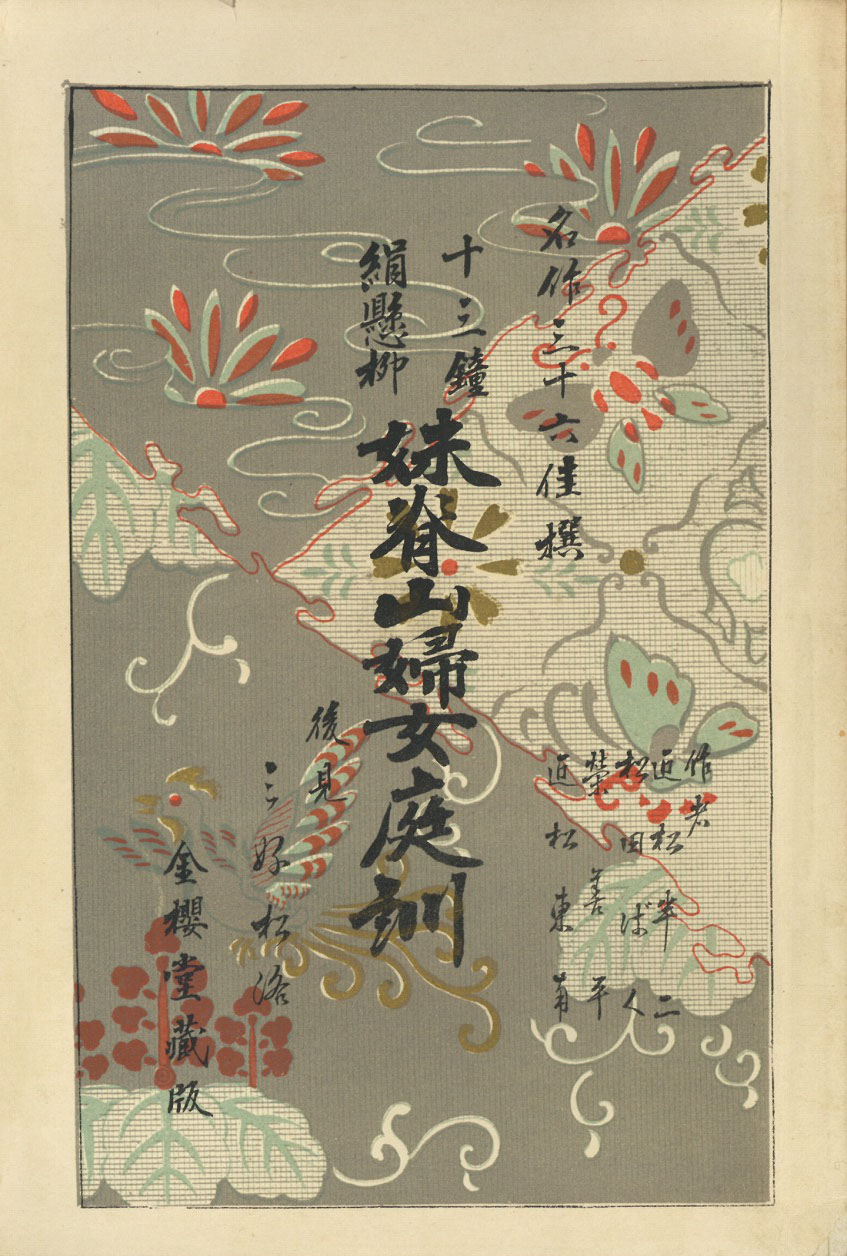 名作三十六佳撰
十三鐘
絹懸柳
妹脊山婦女庭訓
作者
近松半二
松田ばく
榮善平
近松東南
後見
三好松洛
金櫻堂藏版